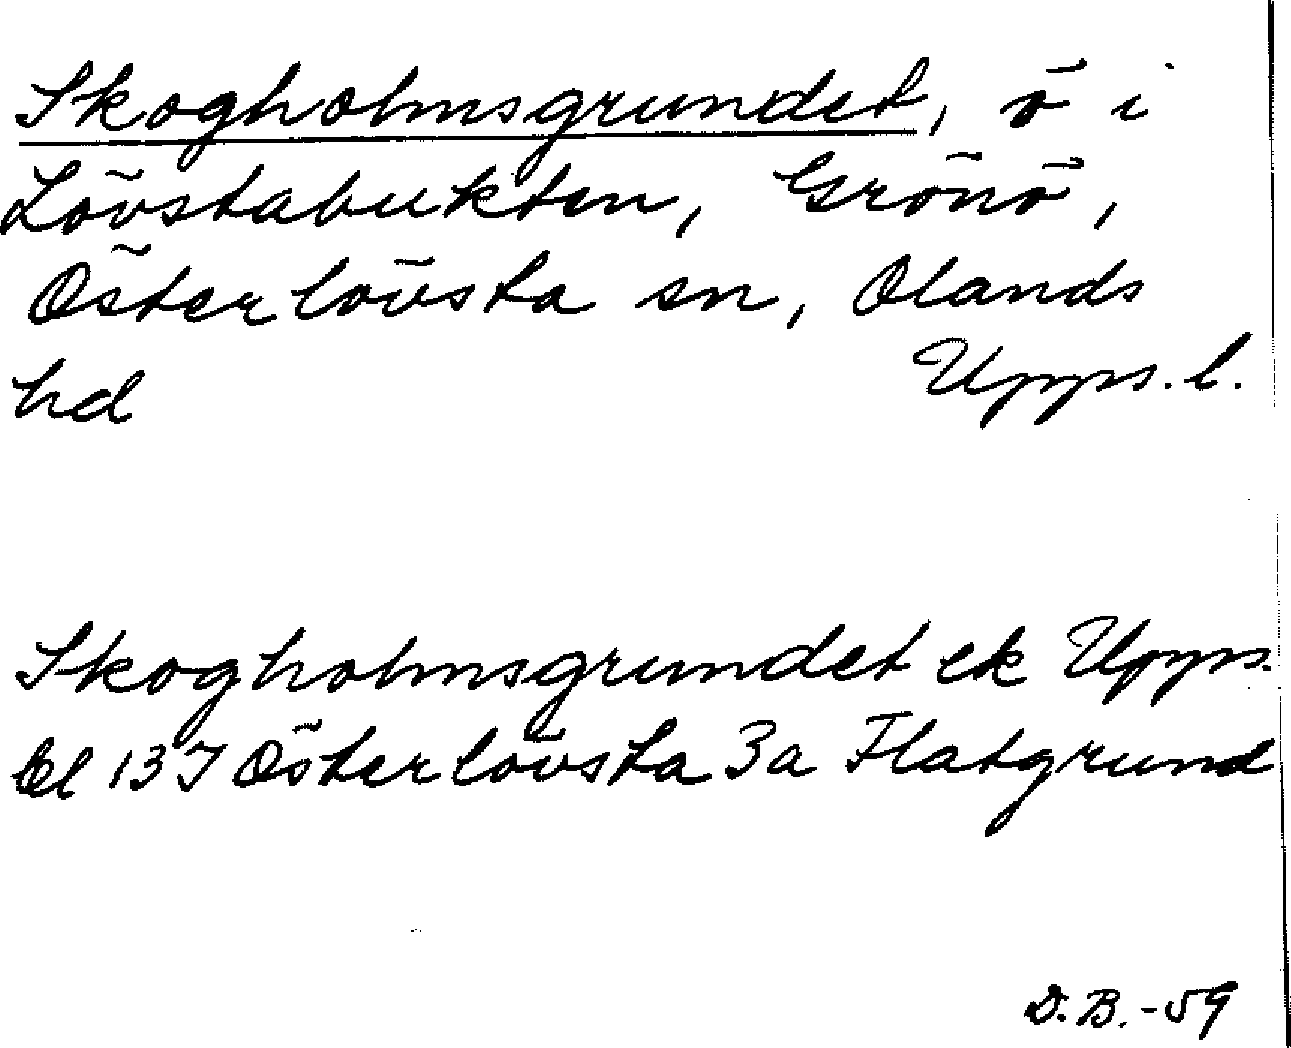 Skogholmsgrundet, ö i
Lövstabukten, Grönö,
Österlövsta sn, Olands
hd Upps. l.
Skogholmsgrundet ek Upps.
bl 13 I Österlövsta 3a Flatgrund
D.B.-59